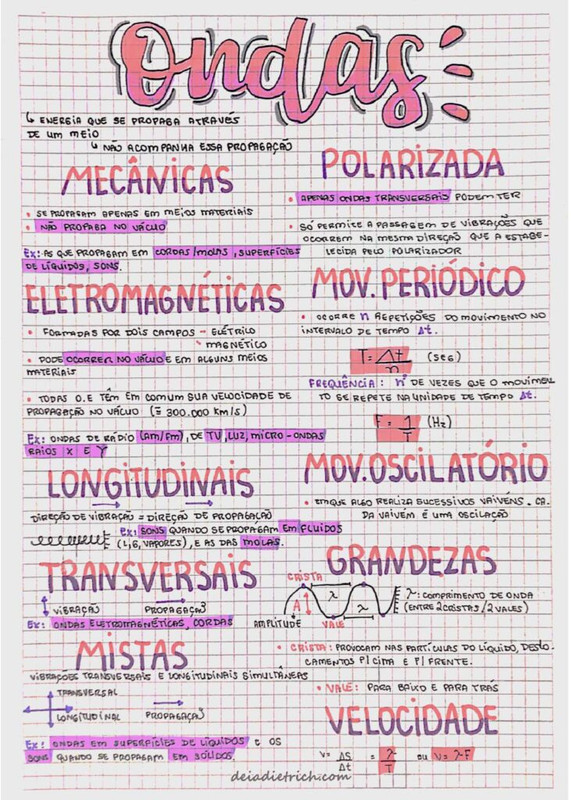 Ondas
↳ ENERGIA QUE SE PROPAGA ATRAVÉS
DE UM MEIO
↳ NÃO ACOMPANHA ESSA PROPAGAÇÃO
MECÂNICAS
• SE PROPAGAM APENAS EM MEIOS MATERIAIS
• NÃO PROPAGA NO VÁCUO
Ex: AS QUE PROPAGAM EM CORDAS/MOLAS, SUPERFÍCIES
DE LÍQUIDOS, SONS.
ELETROMAGNÉTICAS
• FORMADAS POR DOIS CAMPOS - ELÉTRICO
MAGNÉTICO
• PODE OCORRER NO VÁCUO E EM ALGUNS MEIOS
MATERIAIS
• TODAS O.E TÊM EM COMUM SUA VELOCIDADE DE
PROPAGAÇÃO NO VÁCUO (≅ 300.000 KM/S)
Ex: ONDAS DE RÁDIO (AM/FM), DE TV, LUZ, MICRO-ONDAS
RAIOS X E Y
LONGITUDINAIS
DIREÇÃO DE VIBRAÇÃO = DIREÇÃO DE PROPAGAÇÃO
Ex: SONS QUANDO SE PROPAGAM EM FLUIDOS
(L, G, VAPORES), E AS DAS MOLAS.
TRANSVERSAIS
VIBRAÇÃO PROPAGAÇÃO
Ex: ONDAS ELETROMAGNÉTICAS, CORDAS
MISTAS
VIBRAÇÕES TRANSVERSAIS E LONGITUDINAIS SIMULTÂNEAS
TRANSVERSAL
LONGITUDINAL PROPAGAÇÃO
Ex: ONDAS EM SUPERFÍCIES DE LÍQUIDOS E OS
SONS QUANDO SE PROPAGAM EM SÓLIDOS.
POLARIZADA
• APENAS ONDAS TRANSVERSAIS PODEM TER
• SÓ PERMITE A PASSAGEM DE VIBRAÇÕES QUE
OCORREM NA MESMA DIREÇÃO QUE A ESTABE-
LECIDA PELO POLARIZADOR
MOV. PERIÓDICO
• OCORRE n REPETIÇÕES DO MOVIMENTO NO
INTERVALO DE TEMPO Δt.
T = Δt/n (seg)
FREQUÊNCIA: nº DE VEZES QUE O MOVIMEN
TO SE REPETE NA UNIDADE DE TEMPO Δt.
F = 1/T (Hz)
MOV. OSCILATÓRIO
• EM QUE ALGO REALIZA SUCESSIVOS VAIVÉNS. CA.
DA VAIVÉM É UMA OSCILAÇÃO
GRANDEZAS
CRISTA
λ
A
λ
AMPLITUDE VALE
λ: COMPRIMENTO DE ONDA
(ENTRE 2 CRISTAS/2 VALES)
• CRISTA: PROVOCAM NAS PARTÍCULAS DO LÍQUIDO, DESLO-
CAMENTOS P/ CIMA E P/ FRENTE.
• VALE: PARA BAIXO E PARA TRÁS
VELOCIDADE
V = ΔS/Δt = λ/T ou V = λ·F
deiadietrich.com